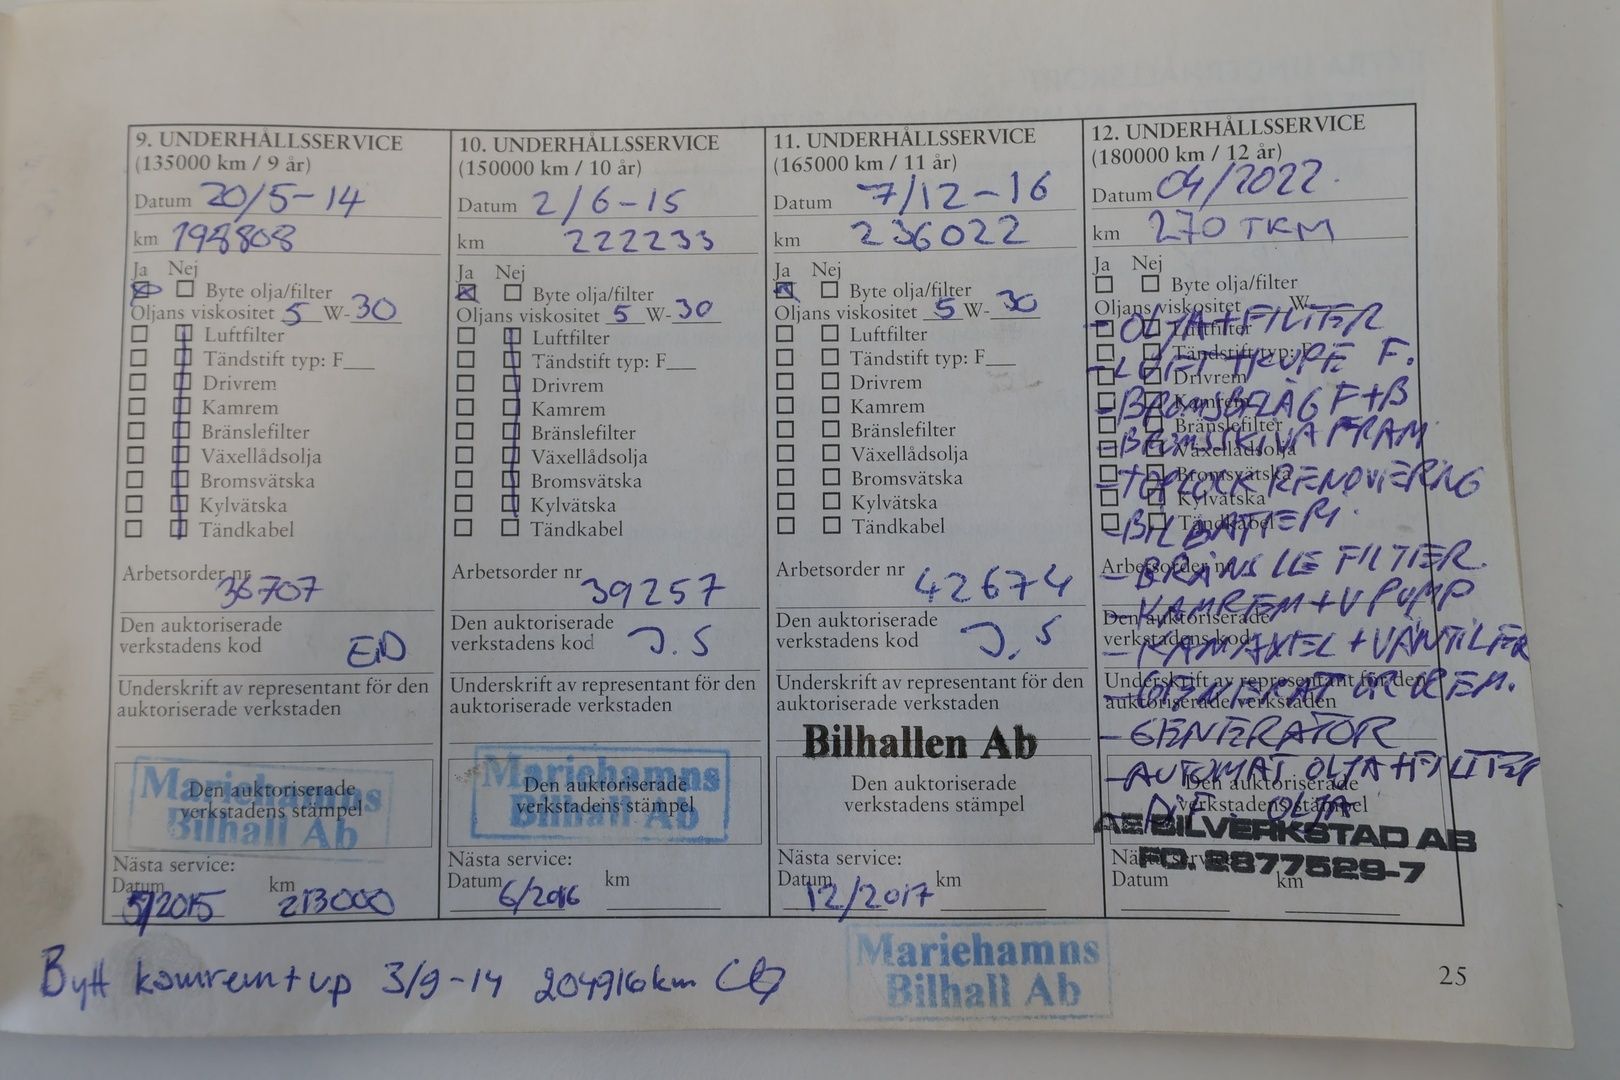 9. UNDERHÅLLSSERVICE
(135000 km / 9 år)
Datum 20/5-14
km 198808
Ja Nej
Byte olja/filter
Oljans viskositet 5 W-30
Luftfilter
Tändstift typ: F___
Drivrem
Kamrem
Bränslefilter
Växellådsolja
Bromsvätska
Kylvätska
Tändkabel
Arbetsorder nr 36707
Den auktoriserade
verkstadens kod EiD
Underskrift av representant för den
auktoriserade verkstaden
Mariehamns
Bilhall Ab
Den auktoriserade
verkstadens stämpel
Nästa service:
Datum km
5/2015 213000
10. UNDERHÅLLSSERVICE
(150000 km / 10 år)
Datum 2/6-15
km 222233
Ja Nej
Byte olja/filter
Oljans viskositet 5 W-30
Luftfilter
Tändstift typ: F___
Drivrem
Kamrem
Bränslefilter
Växellådsolja
Bromsvätska
Kylvätska
Tändkabel
Arbetsorder nr 39257
Den auktoriserade
verkstadens kod J.S
Underskrift av representant för den
auktoriserade verkstaden
Mariehamns
Bilhall Ab
Den auktoriserade
verkstadens stämpel
Nästa service:
Datum 6/2016 km
11. UNDERHÅLLSSERVICE
(165000 km / 11 år)
Datum 7/12-16
km 236022
Ja Nej
Byte olja/filter
Oljans viskositet 5 W-30
Luftfilter
Tändstift typ: F___
Drivrem
Kamrem
Bränslefilter
Växellådsolja
Bromsvätska
Kylvätska
Tändkabel
Arbetsorder nr 42674
Den auktoriserade
verkstadens kod J.S
Underskrift av representant för den
auktoriserade verkstaden
Bilhallen Ab
Den auktoriserade
verkstadens stämpel
Nästa service:
Datum 12/2017 km
12. UNDERHÅLLSSERVICE
(180000 km / 12 år)
Datum 04/2022.
km 270 TKM
Ja Nej
Byte olja/filter
Oljans viskositet W-
Luftfilter
Tändstift typ: F
Drivrem
Kamrem
Bränslefilter
Växellådsolja
Bromsvätska
Kylvätska
Tändkabel
- OLJA+FILTER
F.
- BROMSBELÄG F+B
- BROMSSKIVA FRAM
- TOPLOCK RENOVIERING
- BIL BATTERI.
Arbetsorder nr
- BRÄNSLE FILTER.
- KAMREM+V PUMP
Den auktoriserade
verkstadens kod
- KAMAXEL + VÄNTILER
Underskrift av representant för den
auktoriserade verkstaden
- GENERATORREM.
- GENERATOR
- AUTOMAT OLJA+FILTER
Den auktoriserade
verkstadens stämpel
- DIF. OLJA
AE BILVERKSTAD AB
FO. 2877529-7
Nästa service:
Datum km
Bytt kamrem+vp 3/9-14 204916km
Mariehamns
Bilhall Ab
25